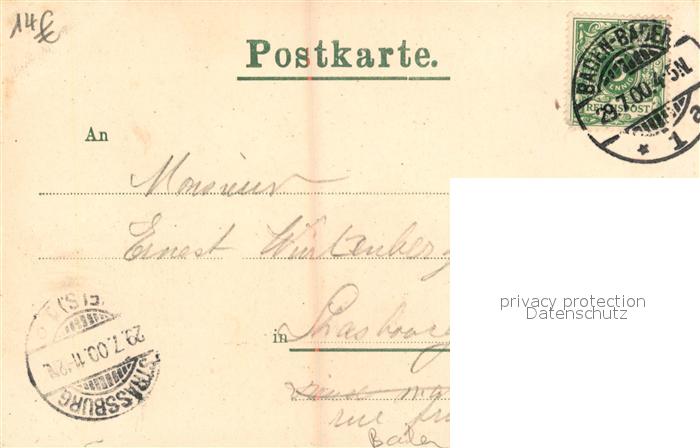 14
Postkarte.
BADEN-BADEN
29.7.00. 4-5N.
* 1 a
5
PFENNIG
REICHSPOST
An
Monsieur
Ernest Wurtenberg
privacy protection
Datenschutz
in Strasbourg
rue
Baden
STRASSBURG (ELS.)
29.7.00.11-12N.